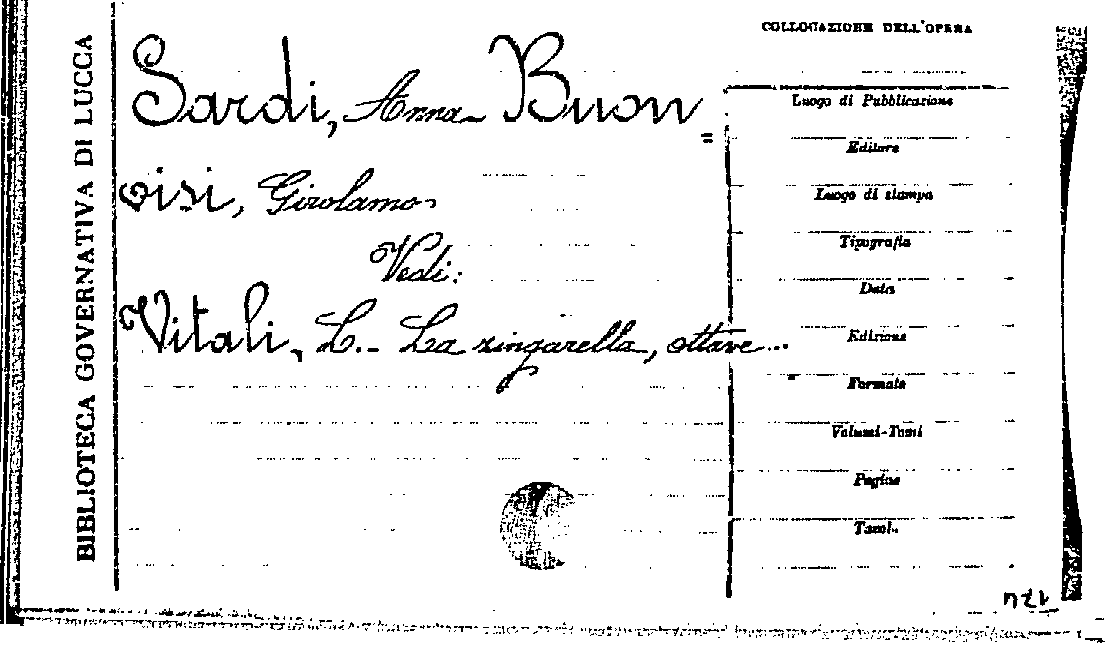 BIBLIOTECA GOVERNATIVA DI LUCCA
Sardi, Anna - Buon=
visi, Girolamo
Vedi:
Vitali, L. - La zingarella, ottave...
COLLOCAZIONE DELL'OPERA
Luogo di Pubblicazione
Editore
Luogo di stampa
Tipografia
Data
Edizione
Formato
Volumi-Tomi
Pagine
Tavol.